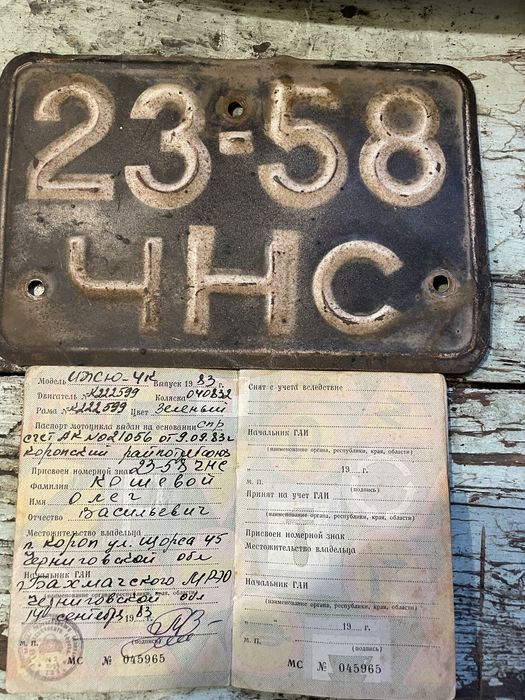 23-58
ЧНС
Модель ИЖСЮ-ЧК Выпуск 1983 г.
Двигатель № К222599 Коляска 040832
Рама № К222599 Цвет Зеленый
Паспорт мотоцикла выдан на основании спр
счет АК №021056 от 9.09.83г
Коропский райпотребсоюз
Присвоен номерной знак 23-58 ЧНС
Фамилия Кошевой
Имя Олег
Отчество Васильевич
Местожительство владельца
п. Короп ул. Щорса 45
Черниговской обл
Начальник ГАИ
Бахмачского МРЭО
Черниговской обл
14 сентября 1983
М. П. (подпись)
МС № 045965
Снят с учета вследствие
Начальник ГАИ
(наименование органа, республики, края, области)
19 г.
М. П. (подпись)
Принят на учет ГАИ
(наименование органа, республики, края, области)
Присвоен номерной знак
Местожительство владельца
Начальник ГАИ
(наименование органа, республики, края, области)
" " 19 г.
М. П. (подпись)
МС № 045965